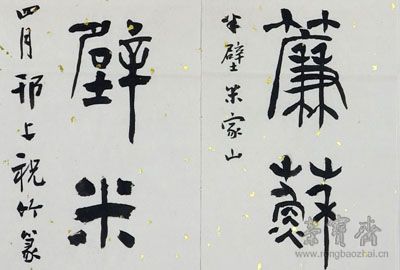 簾蘇
半壁米家山
壁米
四月邗上祝竹篆
榮寶齋
www.rongbaozhai.cn